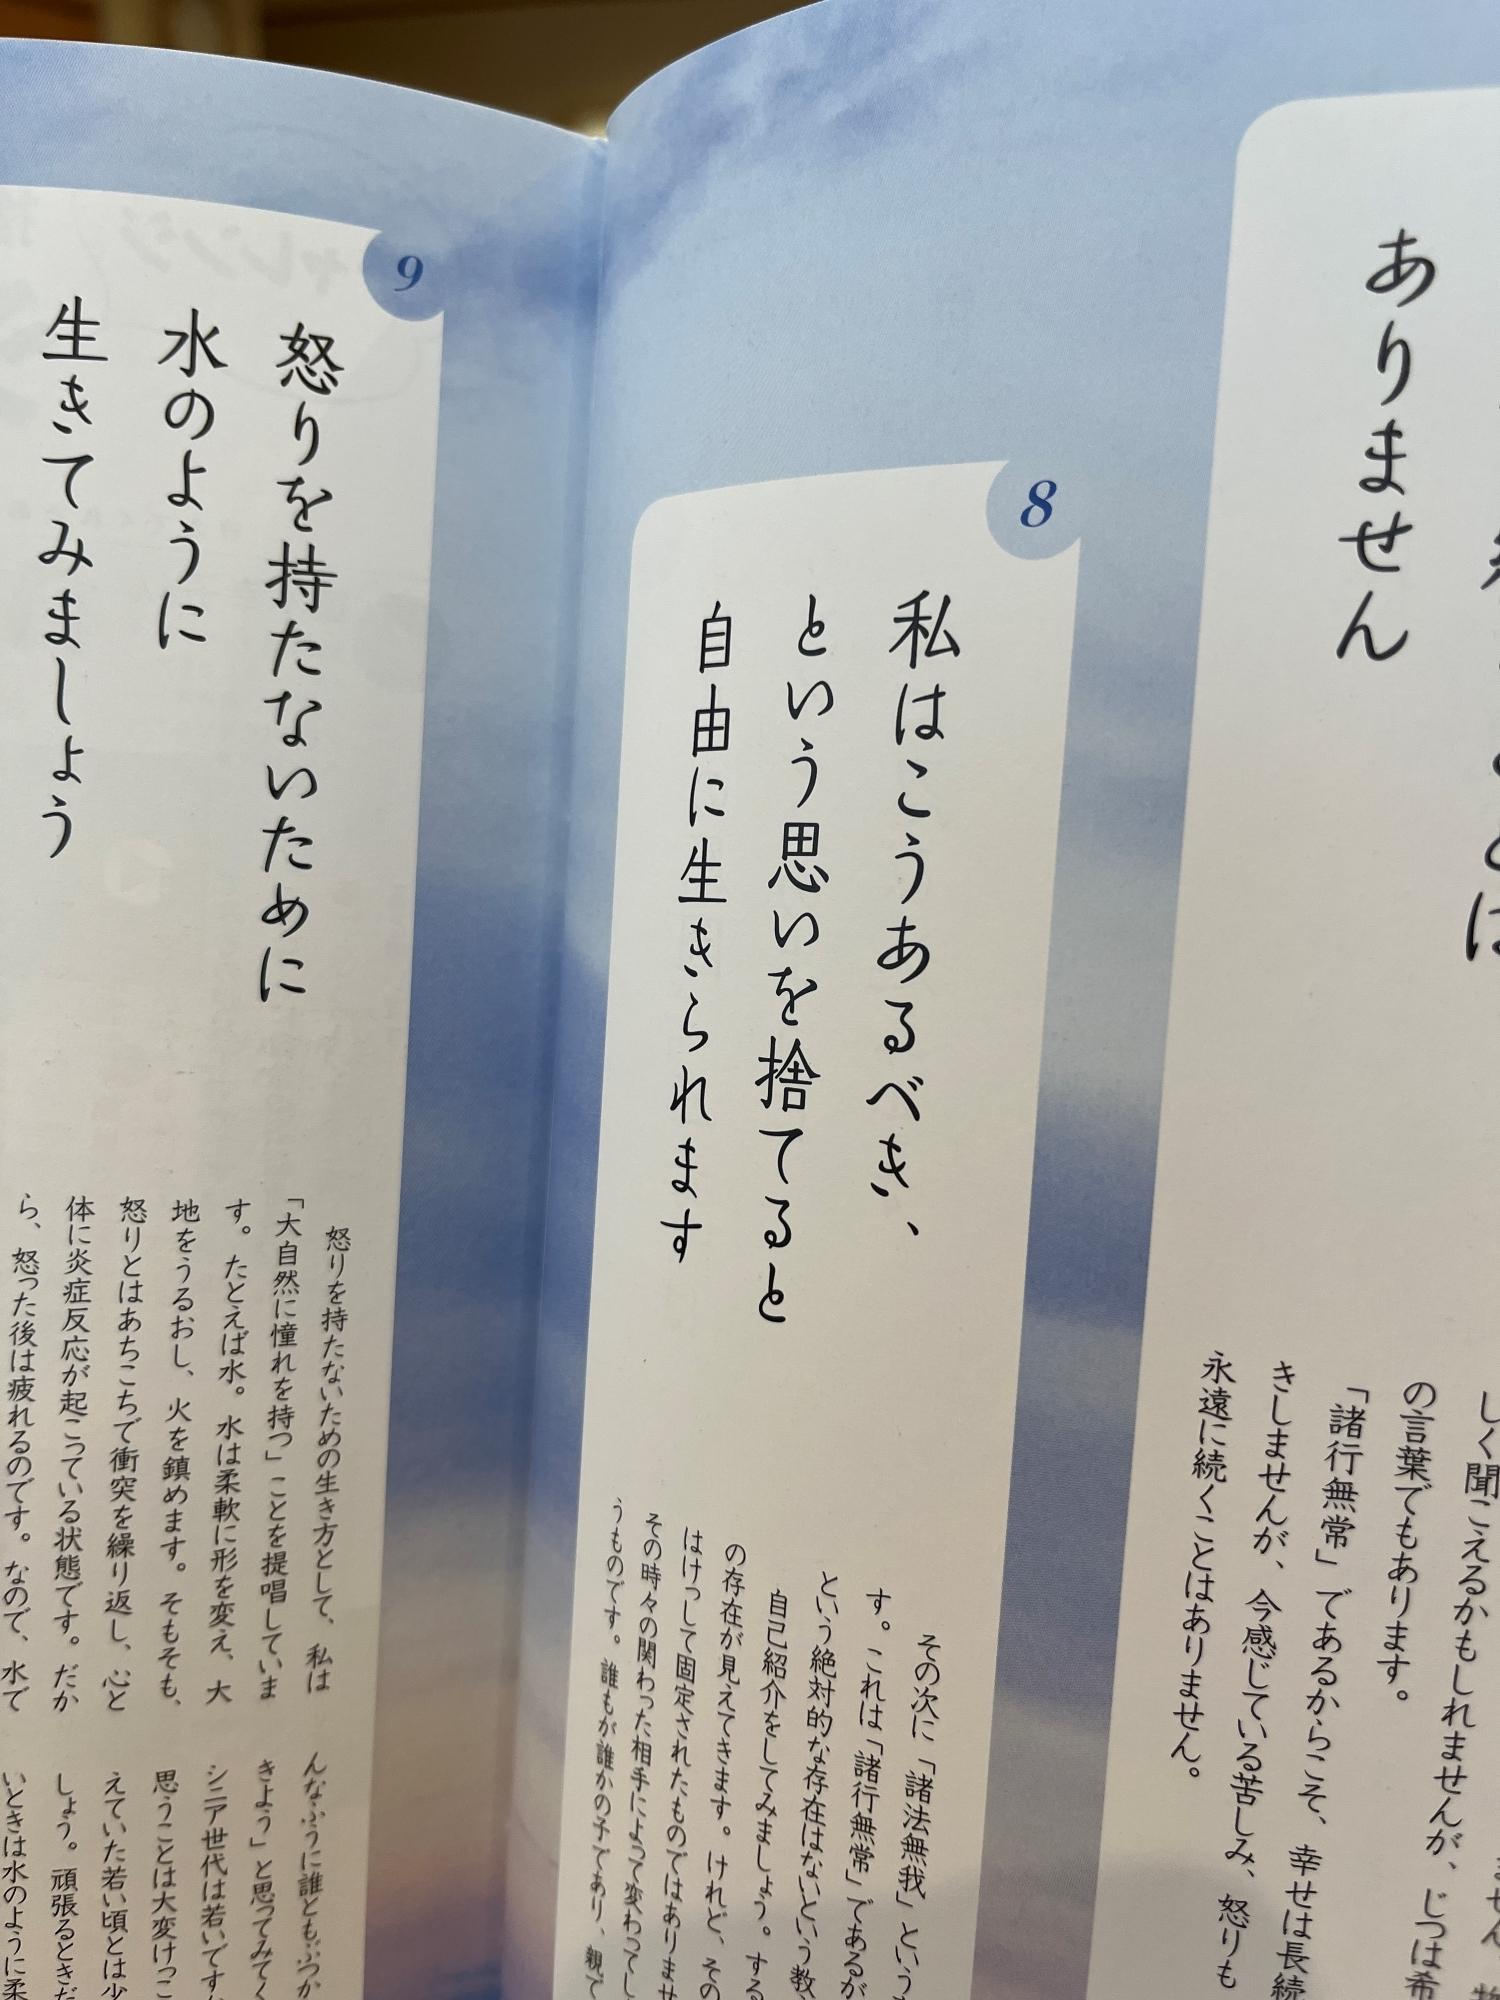 ありません
しく聞こえるかもしれませんが、じつは希
の言葉でもあります。
「諸行無常」であるからこそ、幸せは長続
きしませんが、今感じている苦しみ、怒りも
永遠に続くことはありません。
8
私はこうあるべき、
という思いを捨てると
自由に生きられます
その次に「諸法無我」という
す。これは「諸行無常」であるが
という絶対的な存在はないという教
自己紹介をしてみましょう。する
の存在が見えてきます。けれど、その
はけっして固定されたものではありませ
その時々の関わった相手によって変わってし
うものです。誰もが誰かの子であり、親で
9
怒りを持たないために
水のように
生きてみましょう
怒りを持たないための生き方として、私は
「大自然に憧れを持つ」ことを提唱していま
す。たとえば水。水は柔軟に形を変え、大
地をうるおし、火を鎮めます。そもそも、
怒りとはあちこちで衝突を繰り返し、心と
体に炎症反応が起こっている状態です。だか
ら、怒った後は疲れるのです。なので、水で
んなふうに誰ともぶつか
きよう」と思ってみてく
シニア世代は若いですか
思うことは大変けっこ
えていた若い頃とは少
しょう。頑張るときだ
いときは水のように柔